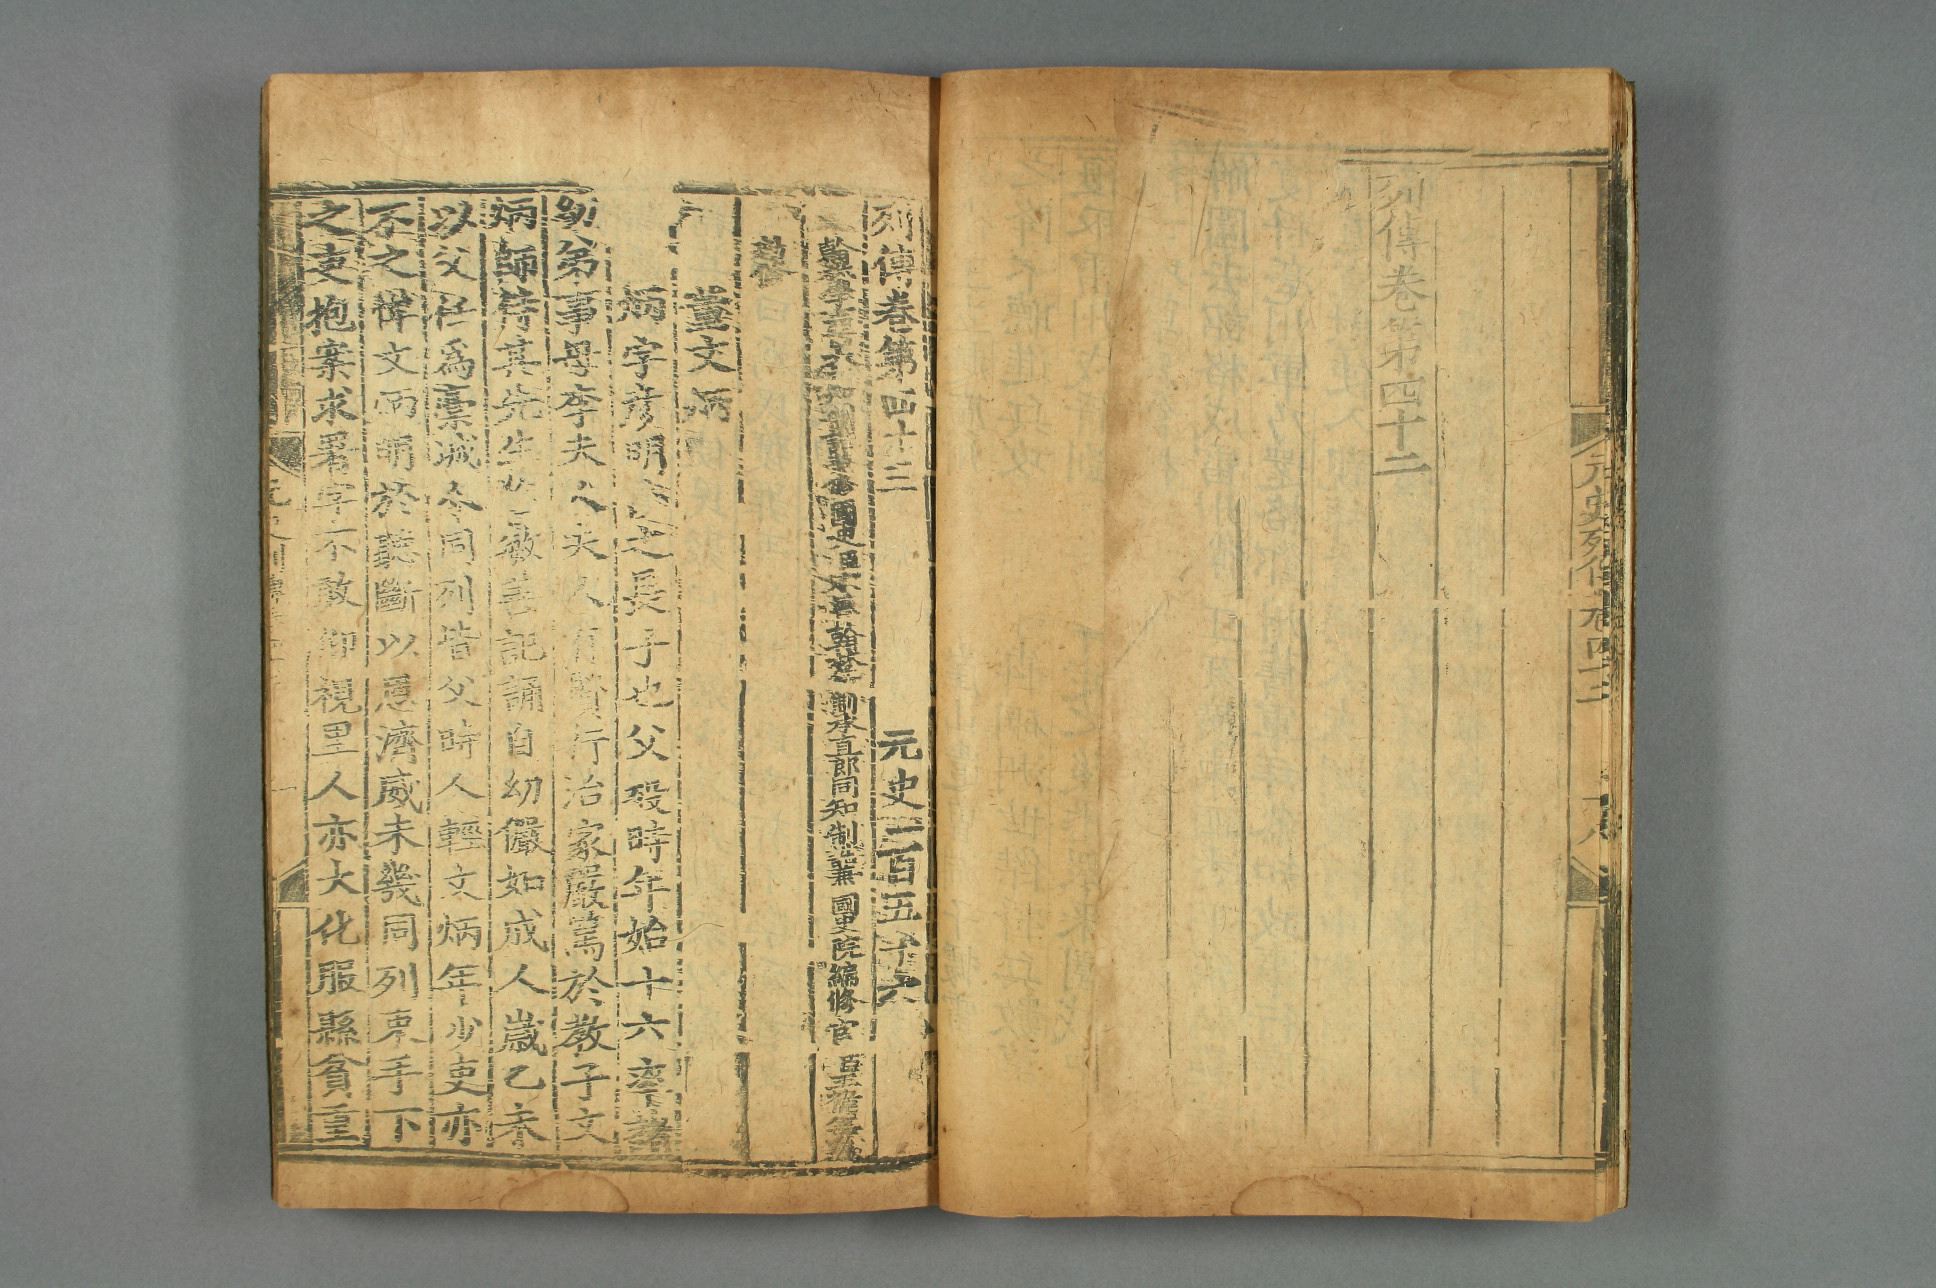 列傳卷第四十二
元史列傳卷四十二
十八
列傳卷第四十三 元史一百五十六
翰林學士亞中大夫知制誥兼修國史臣宋濂翰林待制承直郎同知制誥兼國史院編修官臣王禕等奉
勑修
董文炳
炳字彥明俊之長子也父歿時年始十六率諸
幼弟事母李夫人夫人有賢行治家嚴篤於教子文
炳師侍其先生警敏善記誦自幼儼如成人歲乙未
以父任為藁城令同列皆父時人輕文炳年少吏亦
不之憚文炳明於聽斷以恩濟威未幾同列束手下
之吏抱案求署字不敢仰視里人亦大化服縣貧重